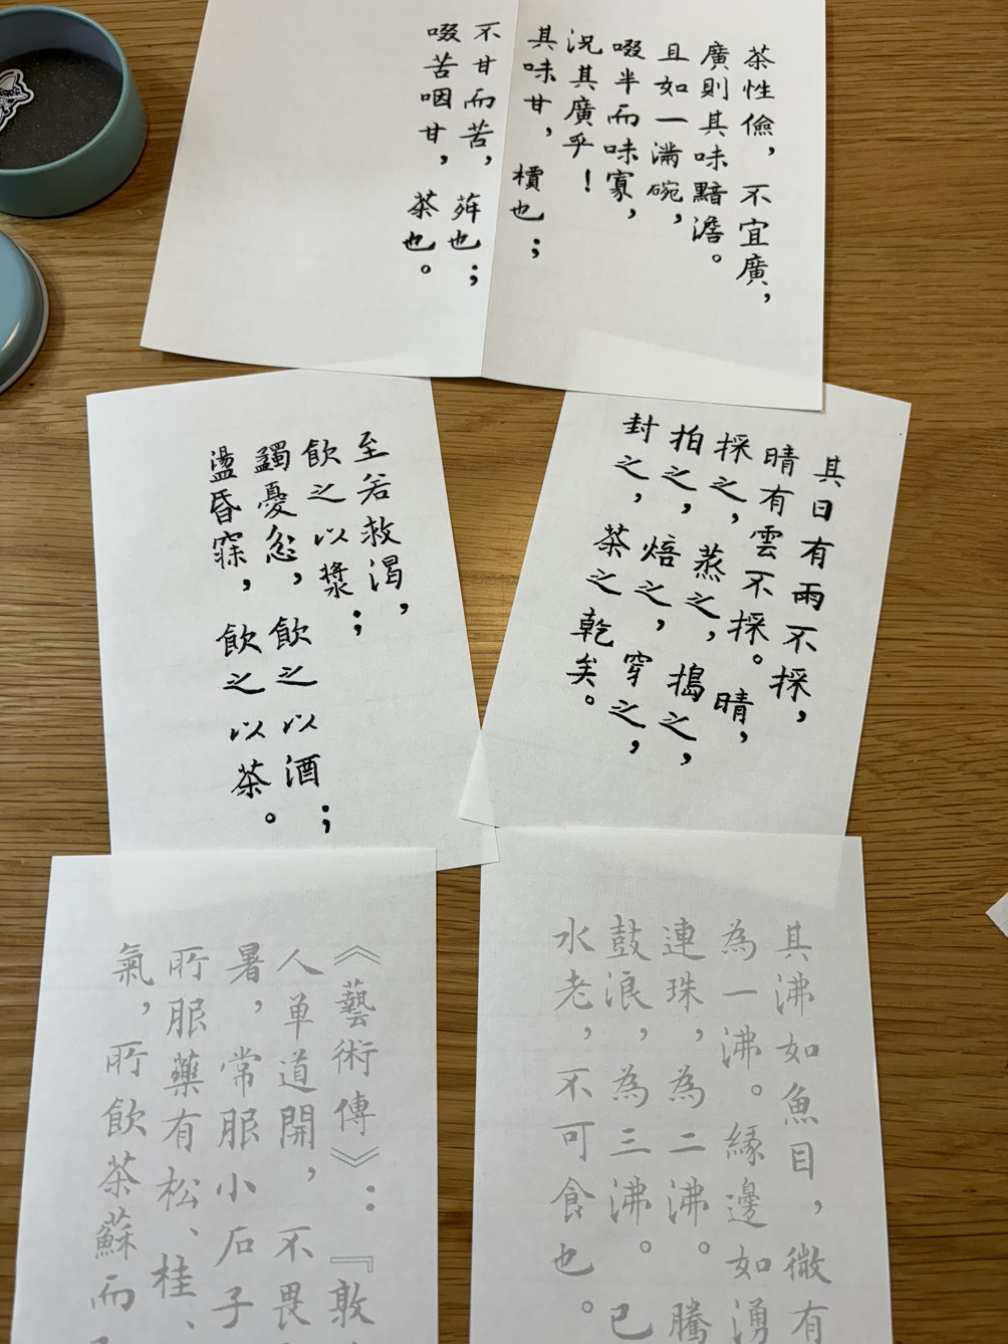 茶性儉，不宜廣，
廣則其味黯澹。
且如一滿碗，
啜半而味寡，
況其廣乎！
其味甘，檟也；
不甘而苦，荈也；
啜苦咽甘，茶也。
其日有雨不採，
晴有雲不採。晴，
採之，蒸之，搗之，
拍之，焙之，穿之，
封之，茶之乾矣。
至若救渴，
飲之以漿；
蠲憂忿，飲之以酒；
盪昏寐，飲之以茶。
其沸如魚目，微有
為一沸。緣邊如湧
連珠，為二沸。騰
鼓浪，為三沸。已
水老，不可食也。
《藝術傳》：『敦
人單道開，不畏
暑，常服小石子
所服藥有松、桂、
氣，所飲茶蘇而